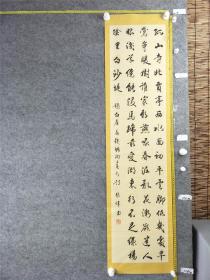 孤山寺北賈亭西水面初平雲脚低幾處早
鶯爭暖樹誰家新燕啄春泥亂花漸欲迷人
眼淺草才能沒馬蹄最愛湖東行不足綠楊
陰里白沙堤 錄白居易錢塘湖春行